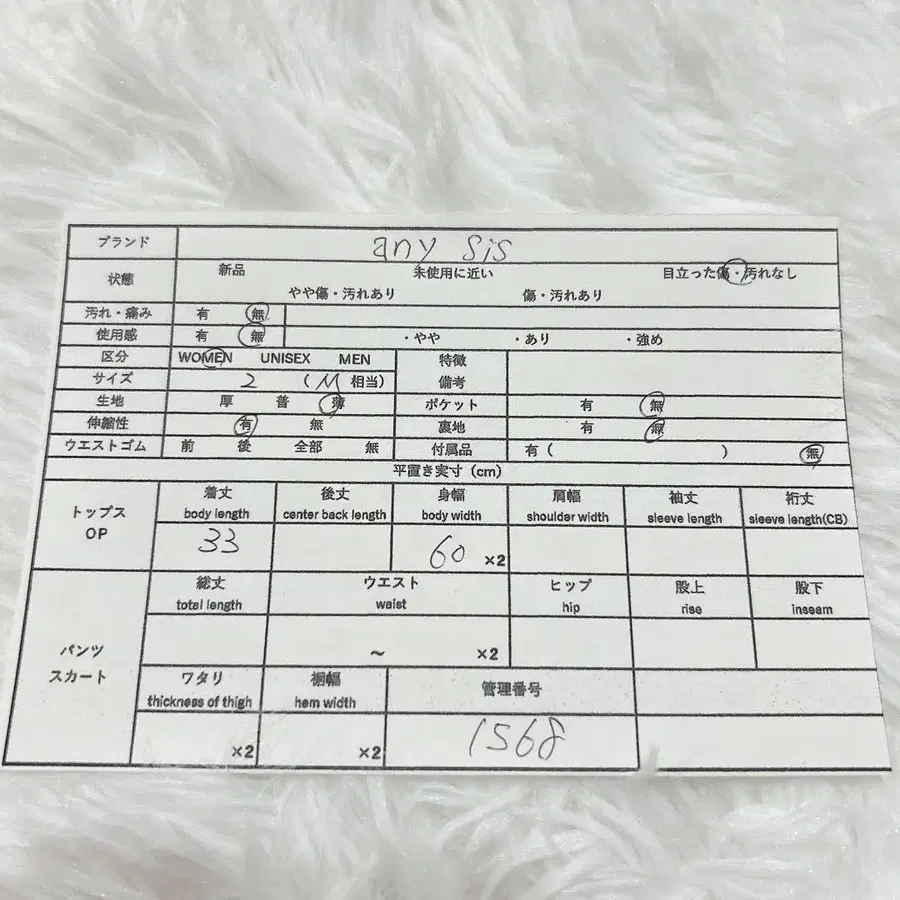 ブランド any sis
状態 新品 未使用に近い 目立った傷・汚れなし
やや傷・汚れあり 傷・汚れあり
汚れ・痛み 有 無
使用感 有 無 ・やや ・あり ・強め
区分 WOMEN UNISEX MEN 特徴
サイズ 2 (M 相当) 備考
生地 厚 普 薄 ポケット 有 無
伸縮性 有 無 裏地 有 無
ウエストゴム 前 後 全部 無 付属品 有 ( ) 無
平置き実寸 (cm)
トップス OP
着丈 後丈 身幅 肩幅 袖丈 裄丈
body length center back length body width shoulder width sleeve length sleeve length(CB)
33 60 ×2
パンツ スカート
総丈 ウエスト ヒップ 股上 股下
total length waist hip rise inseam
~ ×2
ワタリ 裾幅 管理番号
thickness of thigh hem width
×2 ×2 1568